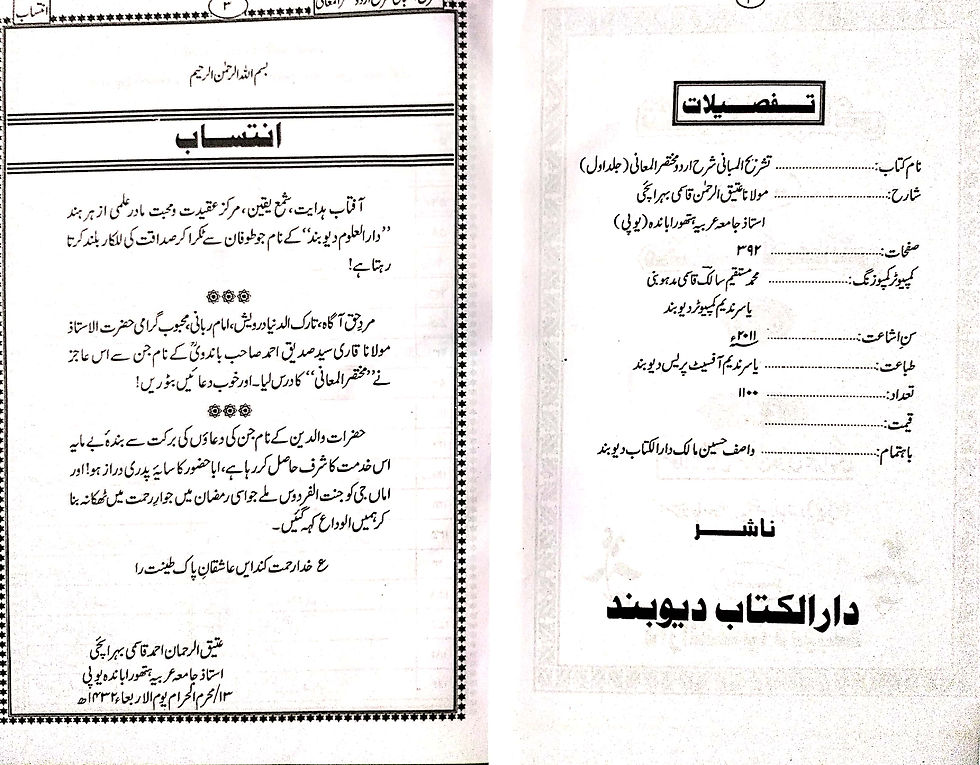 ۲
تفصیلات
نام کتاب: ........ تشریح المبانی شرح اردو مختصر المعانی (جلد اول)
شارح: ........ مولانا عتیق الرحمٰن قاسمی بہرائچی
استاذ جامعہ عربیہ ہتھورا باندہ (یوپی)
صفحات: ........ ۳۹۲
کمپیوٹر کمپوزنگ: ........ محمد مستقیم سالک قاسمی مدہوبنی
یاسر ندیم کمپیوٹر دیوبند
سن اشاعت: ........ ۲۰۱۱ء
طباعت: ........ یاسر ندیم آفسیٹ پریس دیوبند
تعداد: ........ ۱۱۰۰
قیمت: ........
باہتمام: ........ واصف حسین مالک دار الکتاب دیوبند
ناشر
دار الکتاب دیوبند
انتساب
۳
شرح اردو مختصر المعانی
بسم اللہ الرحمٰن الرحیم
انتساب
آفتاب ہدایت، شمع یقین، مرکز عقیدت ومحبت مادر علمی از ہر ہند
’’دار العلوم دیوبند‘‘ کے نام جو طوفان سے ٹکرا کر صداقت کی للکار بلند کرتا
رہتا ہے!
مرد حق آگاہ، تارک الدنیا درویش، امام ربانی، محبوب گرامی حضرت الاستاذ
مولانا قاری سید صدیق احمد صاحب باندویؒ کے نام جن سے اس عاجز
نے ’’مختصر المعانی‘‘ کا درس لیا۔ اور خوب دعائیں بٹوریں!
حضرات والدین کے نام جن کی دعاؤں کی برکت سے بندۂ بے مایہ
اس خدمت کا شرف حاصل کر رہا ہے، ابا حضور کا سایۂ پدری دراز ہو! اور
اماں جی کو جنت الفردوس ملے جو اسی رمضان میں جوار رحمت میں ٹھکانہ بنا
کر ہمیں الوداع کہہ گئیں۔
ع خدا رحمت کند ایں عاشقانِ پاک طینت را
عتیق الرحمان احمد قاسمی بہرائچی
استاذ جامعہ عربیہ ہتھورا باندہ یوپی
۱۳/محرم الحرام یوم الاربعاء ۱۴۳۲ھ